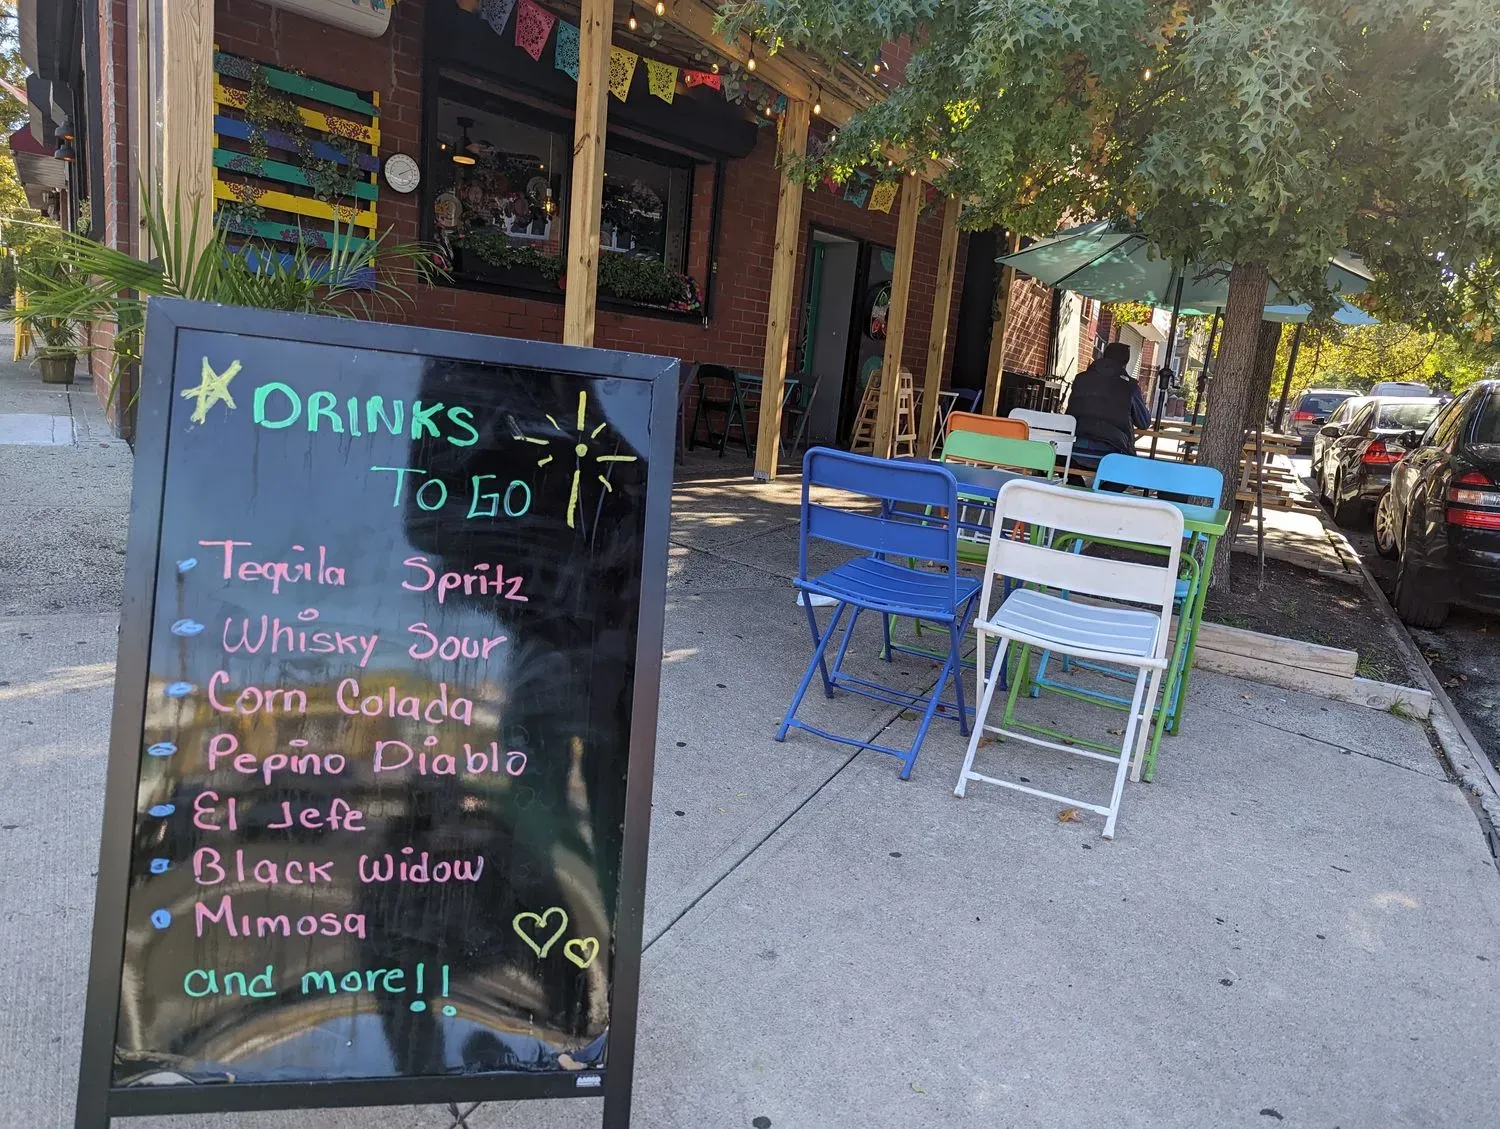 DRINKS
TO GO
Tequila Spritz
Whisky Sour
Corn Colada
Pepino Diablo
El Jefe
Black Widow
Mimosa
and more!!